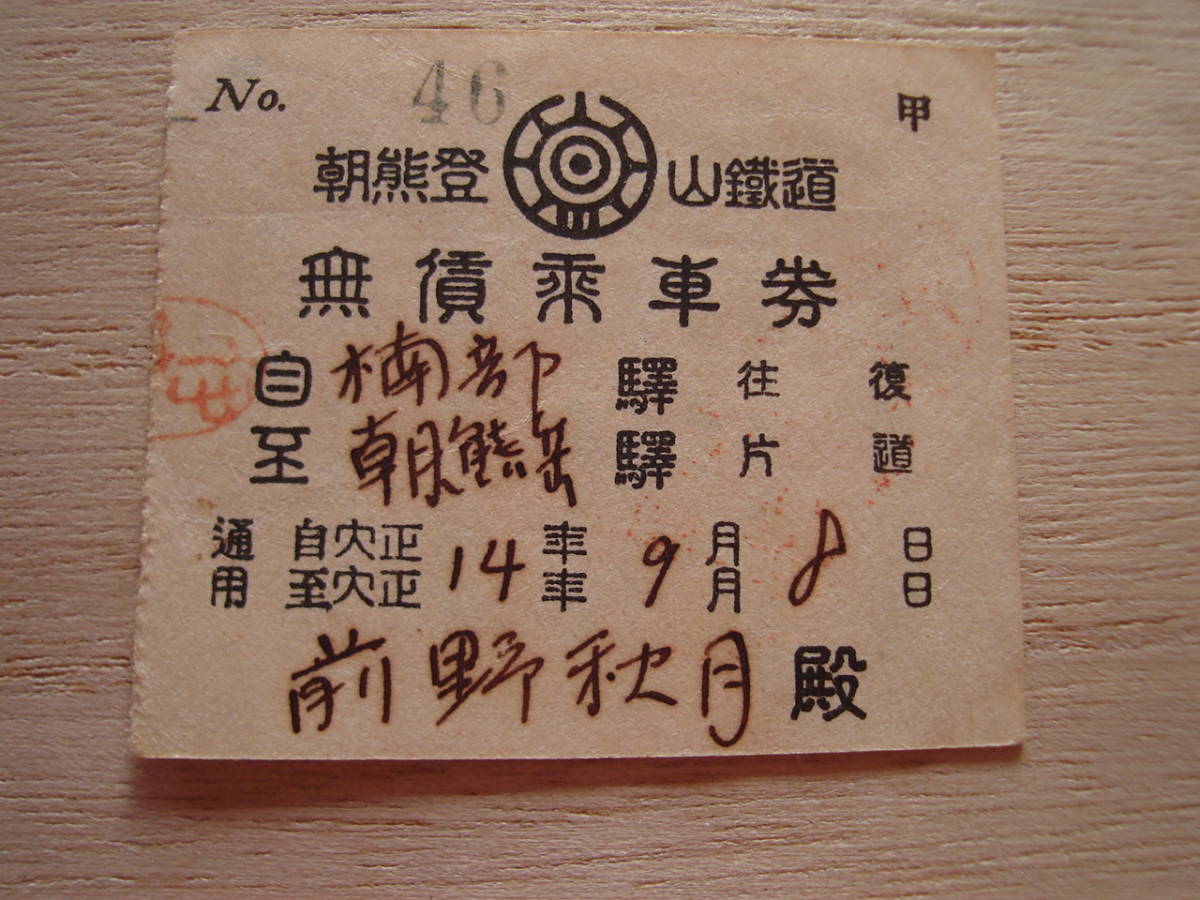 No. 46 甲
朝熊登山鐵道
無賃乘車券
自 楠部 驛 往復
至 朝熊岳 驛 片道
通用 自大正 14 年 9 月 8 日
至大正 年 月 日
前野秋月殿